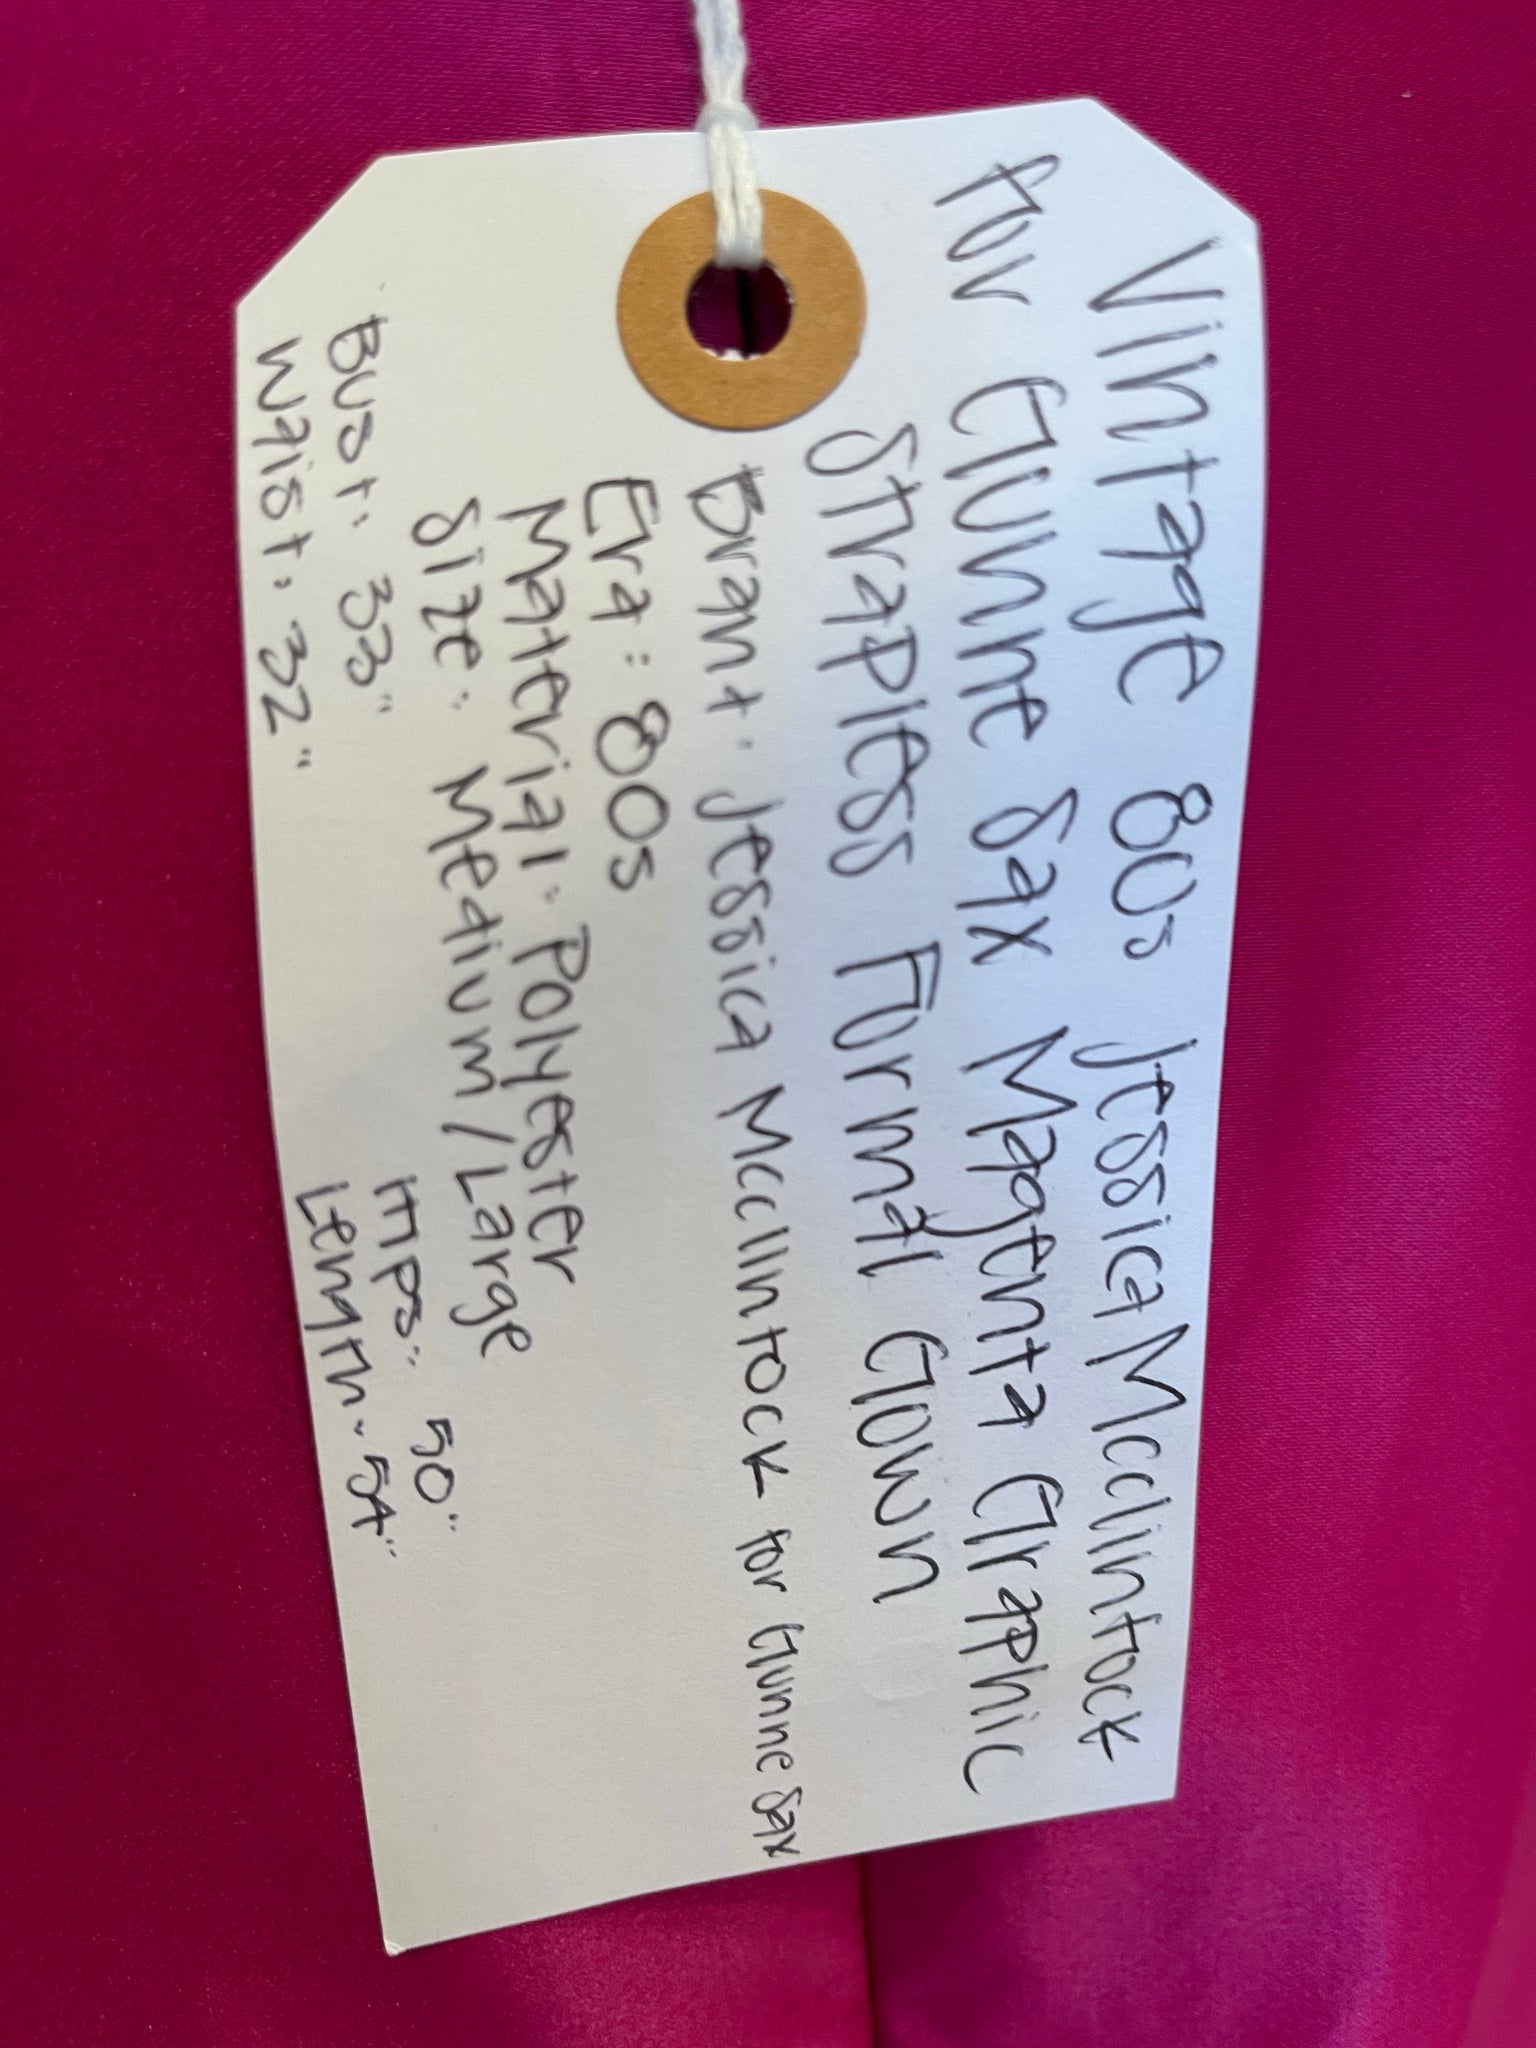 Vintage 80s Jessica Mcclintock
for Gunne Sax Magenta Graphic
Strapless Formal Gown
Brant: Jessica Mcclintock for Gunne Sax
Era: 80s
Material: Polyester
Size: Medium/Large
Bust: 33" Hips: 50"
Waist: 32" Length: 54"